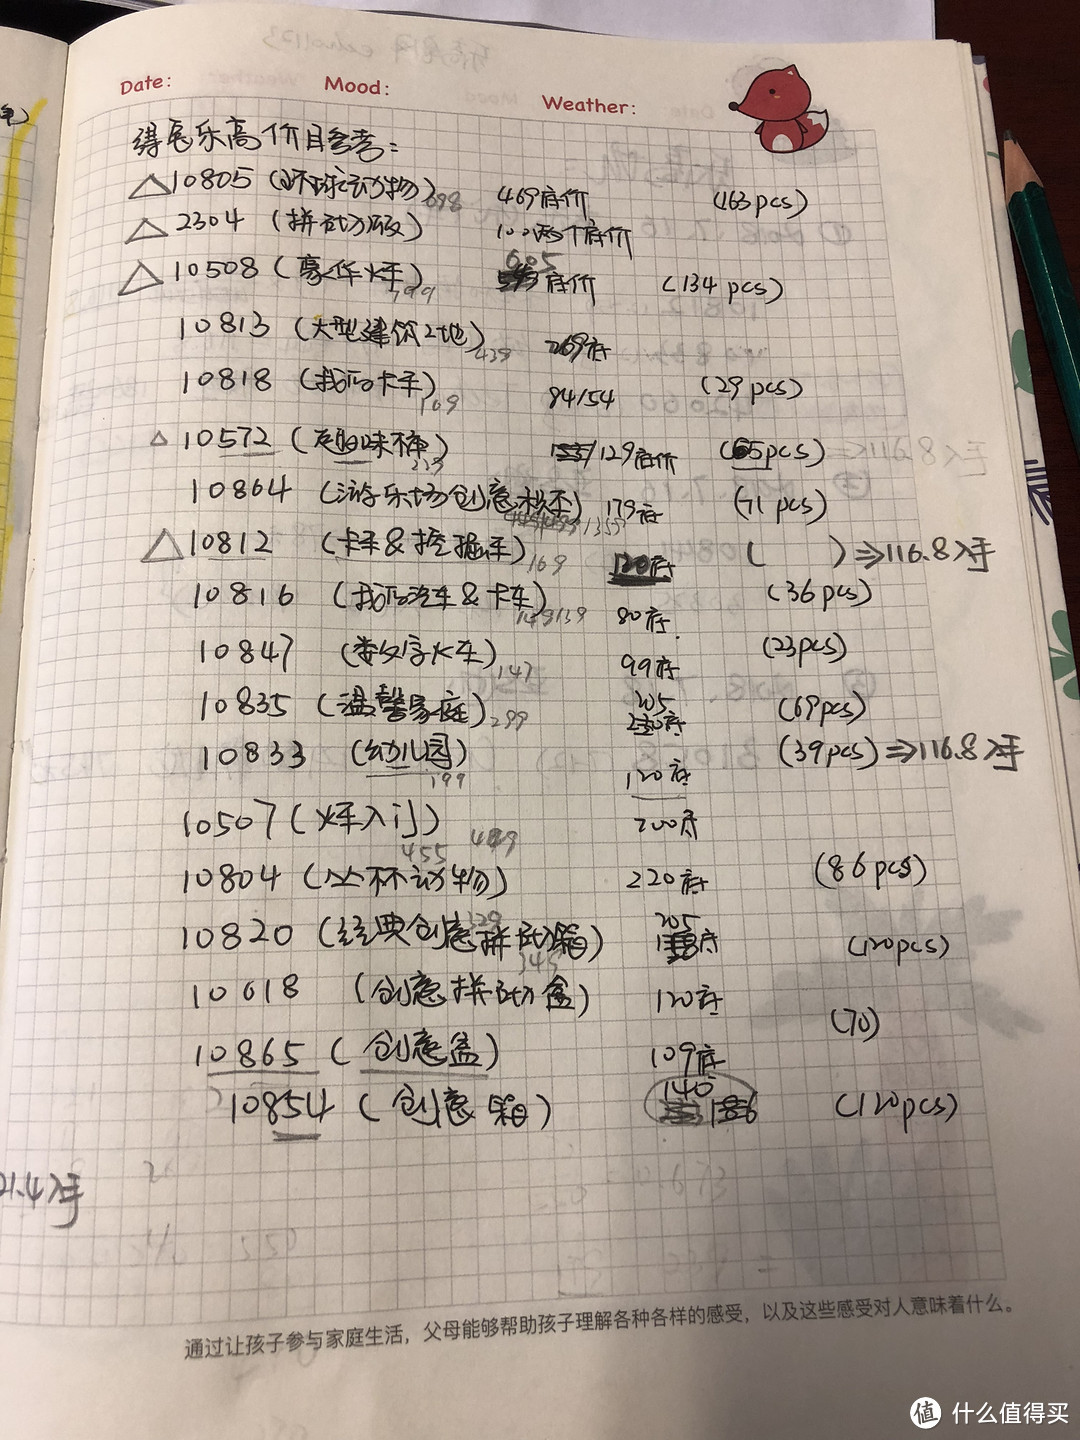 Date: Mood: Weather:
得宝乐高价目参考:
△10805 (环球动物) 698 469底价 (163pcs)
△2304 (拼砌底板) 100两个底价
△10508 (豪华火车) 799 605底价 (134pcs)
10813 (大型建筑工地) 439 269底
10818 (我的卡车) 169 84/54 (29pcs)
△10572 (趣味桶) 223 /129底价 (65pcs)
10864 (游乐场创意积木) 179底 (71pcs)
△10812 (卡车&挖掘车) 169 120底 ( ) ⇒116.8入手
10816 (我的汽车&卡车) 149 139 80底 (36pcs)
10847 (数字火车) 147 99底 (23pcs)
10835 (温馨家庭) 299 205 底 (69pcs)
10833 (幼儿园) 199 120底 (39pcs) ⇒116.8入手
10507 (火车入门) 455 200底
10804 (丛林动物) 220底 (86pcs)
10820 (经典创意拼砌箱) 329 205 底 (120pcs)
10618 (创意拼砌盒) 345 120底
10865 (创意盒) 109底 (70)
10854 (创意箱) 140 186 (120pcs)
21.4入手
通过让孩子参与家庭生活，父母能够帮助孩子理解各种各样的感受，以及这些感受对人意味着什么。
值 什么值得买